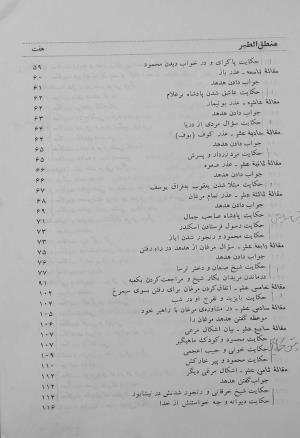 منطق‌الطیر
هفت
حکایت پاکرای و در خواب دیدن محمود ۵۹
مقالهٔ تاسعه ـ عذر باز ۶۰
جواب دادن هدهد ۶۱
حکایت عاشق شدن پادشاه برغلام ۶۲
مقالهٔ عاشره ـ عذر بوتیمار ۶۲
جواب دادن هدهد
حکایت سؤال مردی از دریا
مقالهٔ حادیة عشر ـ عذر کوف (بوف) ۶۴
جواب دادن هدهد
حکایت مرد زردار و پسرش ۶۵
مقالهٔ ثانیة عشر ـ عذر صعوه ۶۵
جواب دادن هدهد
حکایت مبتلا شدن یعقوب بفراق یوسف
مقالهٔ ثالثة عشر ـ عذر تمام مرغان
جواب دادن هدهد
حکایت پادشاه صاحب جمال
حکایت رسول فرستادن اسکندر ۷۳
حکایت محمود و رنجور شدن ایاز ۷۳
مقالهٔ رابعة عشر ـ سؤال مرغان از هدهد در راه رفتن ۷۵
جواب دادن هدهد ۷۶
حکایت شیخ صنعان و دختر ترسا ۷۷
درماندن مریدان بکار شیخ و مراجعت‌کردن بکعبه ۹۱
مقالهٔ خامس عشر ـ اتفاق‌کردن مرغان برای رفتن بسوی سیمرغ ۱۰۲
حکایت بایزید و تفرج او در شب ۱۰۴
مقالهٔ سادس عشر ـ در مشاوره‌ی مرغان با راهبر خود ۱۰۵
موعظه گفتن هدهد مرغان را ۱۰۶
مقالهٔ سابع عشر ـ بیان اشکال مرغی ۱۰۶
حکایت محمود و کودک ماهیگیر ۱۰۷
حکایت خونی و حبیب اعجمی ۱۰۹
حکایت محمود و پیر خارکش ۱۱۰
مقالهٔ ثامن عشر ـ اشکال مرغی دیگر ۱۱۲
جواب‌گفتن هدهد ۱۱۲
حکایت شیخ خرقانی و رنجور شدنش در نیشابور ۱۱۴
حکایت دیوانه و جبه خواستنش از خدا ۱۱۶